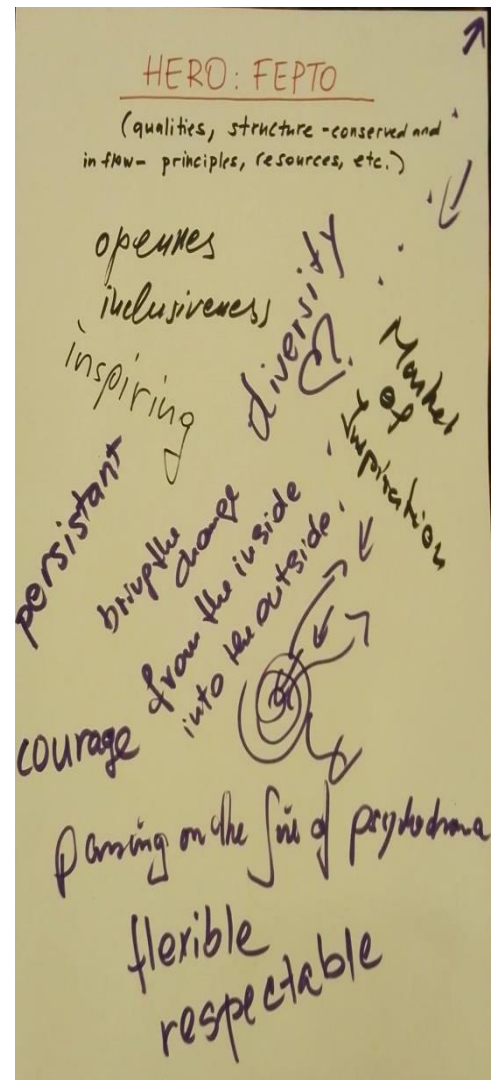 HERO: FEPTO
(qualities, structure - conserved and
in flow - principles, resources, etc.)
opennes
inclusiveness
inspiring
diversity
Market
of
Inspiration
persistant
bring the
change
from the inside
into the outside.
courage
Passing on the fire of psychodrama
flexible
respectable